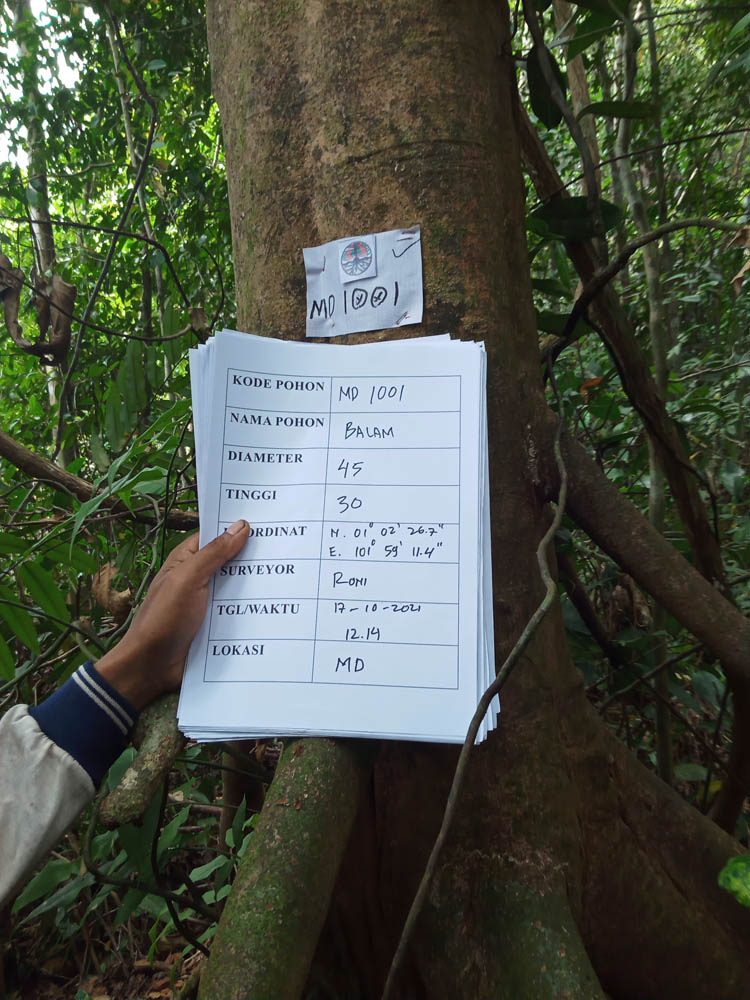 MD 1001
KODE POHON MD 1001
NAMA POHON BALAM
DIAMETER 45
TINGGI 30
ORDINAT N. 01° 02' 26.7"
E. 101° 59' 11.4"
SURVEYOR RONI
TGL/WAKTU 17-10-2021
12.14
LOKASI MD